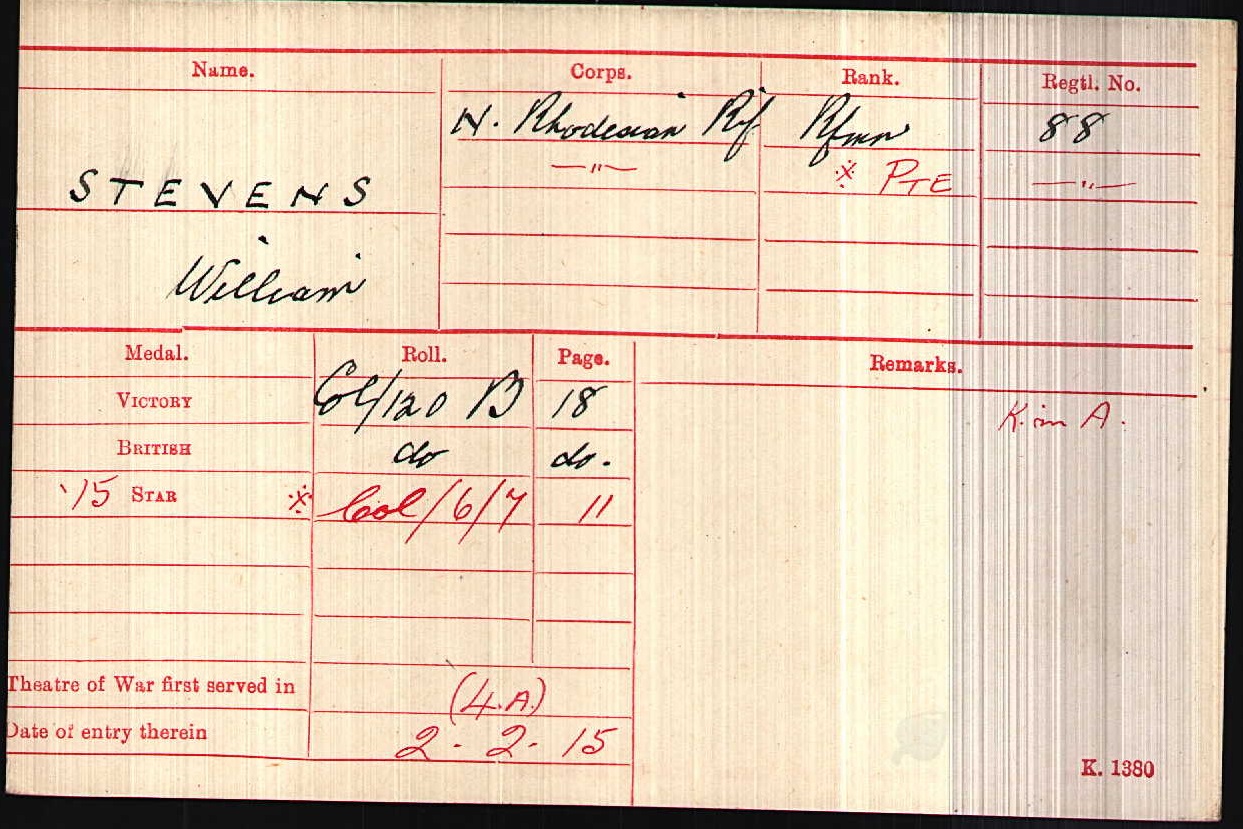 Name. Corps. Rank. Regtl. No.
N. Rhodesian Rif Rfmn 88
—"— ※ PTE —"—
STEVENS
William
Medal. Roll. Page. Remarks.
VICTORY Col/120 B 18 K. in A.
BRITISH do do.
'15 STAR ※ Col/6/7 11
Theatre of War first served in (4.A)
Date of entry therein 2. 2. 15
K. 1380